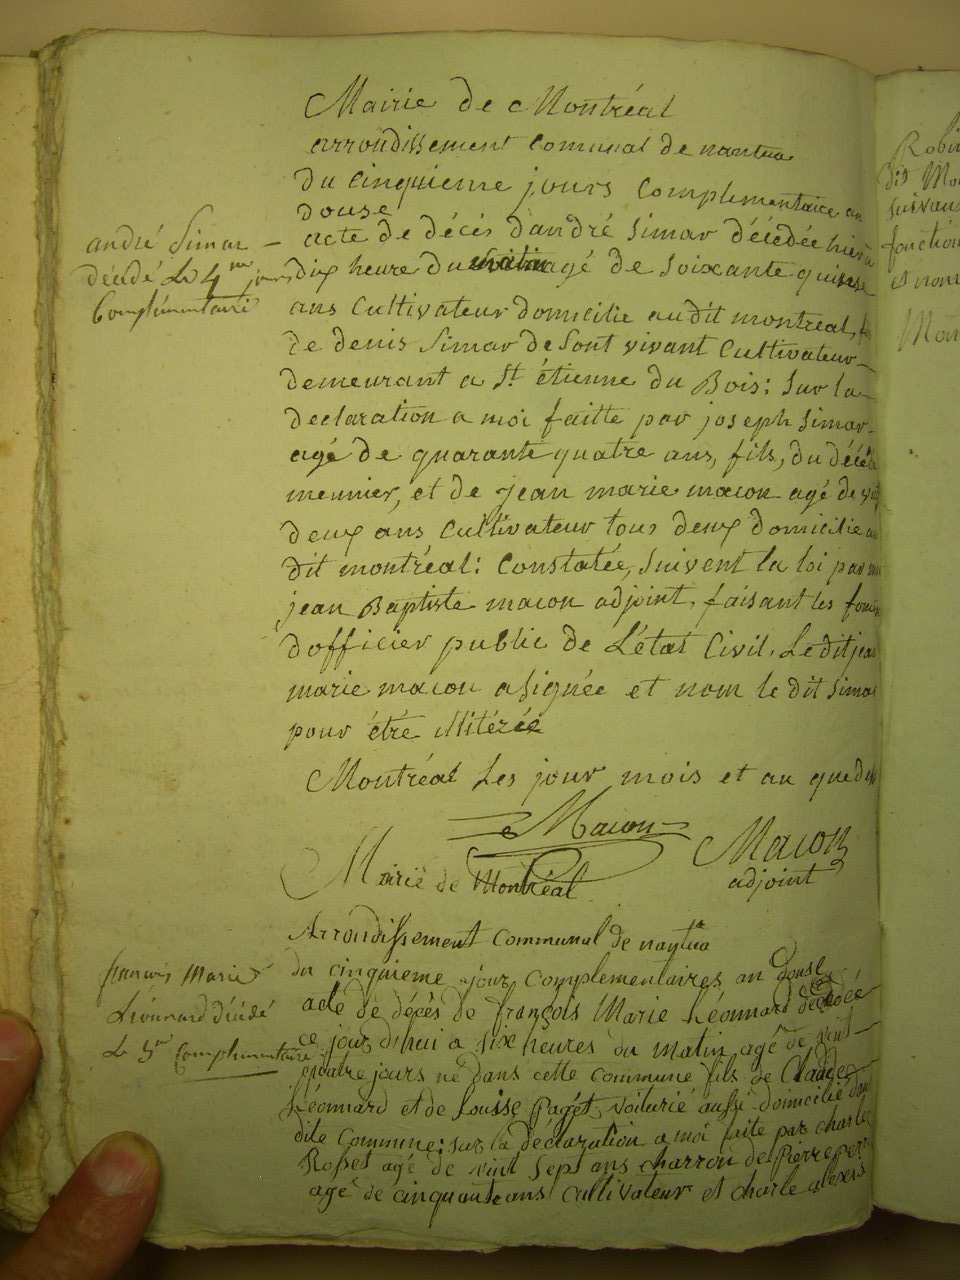 Mairie de Montréal
arrondissement Comunal de nantua
du cinquieme jours Complementaire an
douse
andré Simar
décédé Le 4me jours
Complimentaire
acte de décés dandré Simar décédée hier à
dix heure du matin agé de soixante quinse
ans Cultivateur domicilie audit montreal, fils
de denis Simar de Sont vivant Cultivateur
demeurant a St. étienne du Bois: Sur la
declaration a moi faitte par joseph Simar
agé de quarante quatre ans, fils, du décédé
meunier, et de jean marie macon agé de vint
deux ans Cultivateur tous deux domicilie au
dit montréal: Constatée, suivent la loi par moi
jean Baptiste macon adjoint, faisant les
dofficier public de L'état Civil. Le dit jean
marie macon a signée et nom le dit Simar
pour étre illitérée
Montréal Les jour mois et an que dessus
Macon
Macon
adjoint
Mairie de Montréal
Arrondissement Communal de nantua
francois Marie
Léonnard décédé
Le 5me Complimentaire
du cinquieme jour Complementaires an douse
acte de décés de françois Marie Léonnard décédé
ce jourd'hui a six heures du matin agé de vint
quatre jours né dans cette commune fils de Claude
Léonnard et de Louise Paget, voiturié aussi domicilié
dite Commune: sur la déclaration a moi faite par charle
Rosset agé de vint sept ans charron de Pierre
agé de cinquante ans cultivateur et charle
Robin
dit
suivans
fonction
et nom
Mon